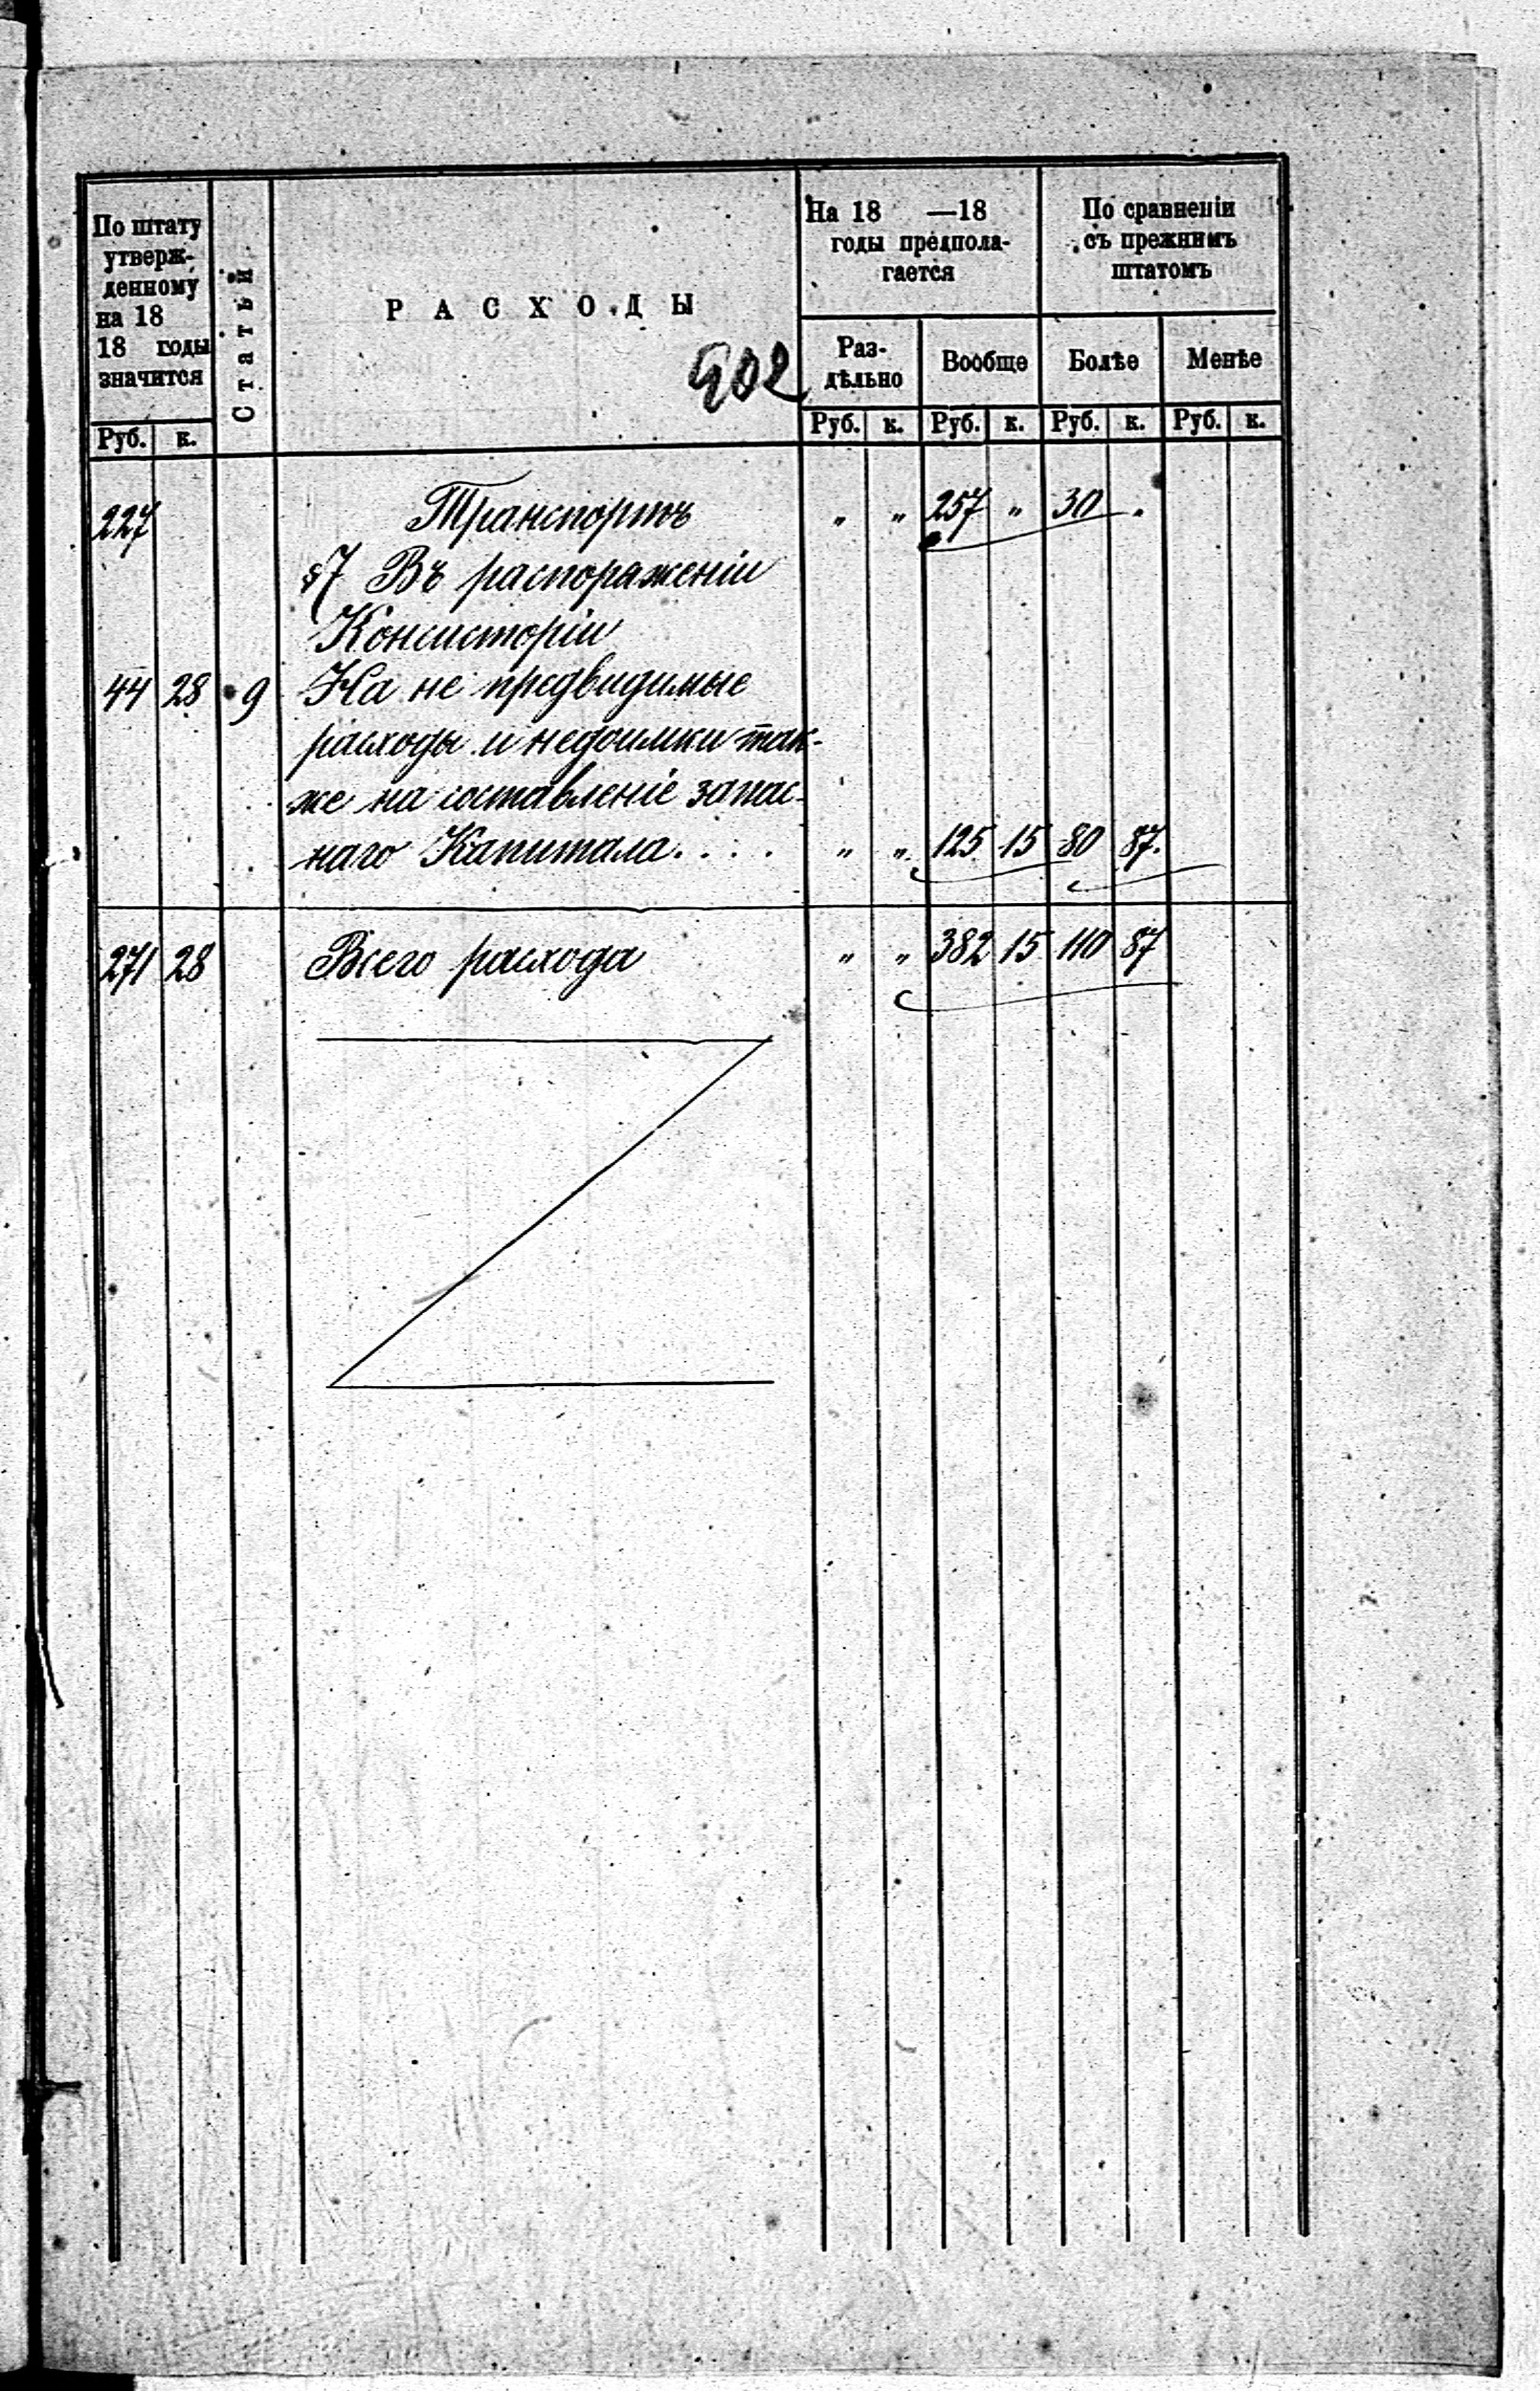 По штату
утверж-
денному
на 18
18 годы
значится
Руб. к.
Статьи
РАСХОДЫ
902
На 18 —18
годы предпола-
гается
Раз-
дѣльно
Вообще
Руб. к. Руб. к.
По сравненіи
съ прежнимъ
штатомъ
Болѣе Менѣе
Руб. к. Руб. к.
227 Транспортъ „ „ 257 „ 30 „
§7 Въ распоряженіи
Консисторіи
44 28 9 На не предвидимые
расходы и недоимки так-
же на составленіе запас-
наго Капитала.... „ „ 125 15 80 87.
271 28 Всего расхода „ „ 382 15 110 87